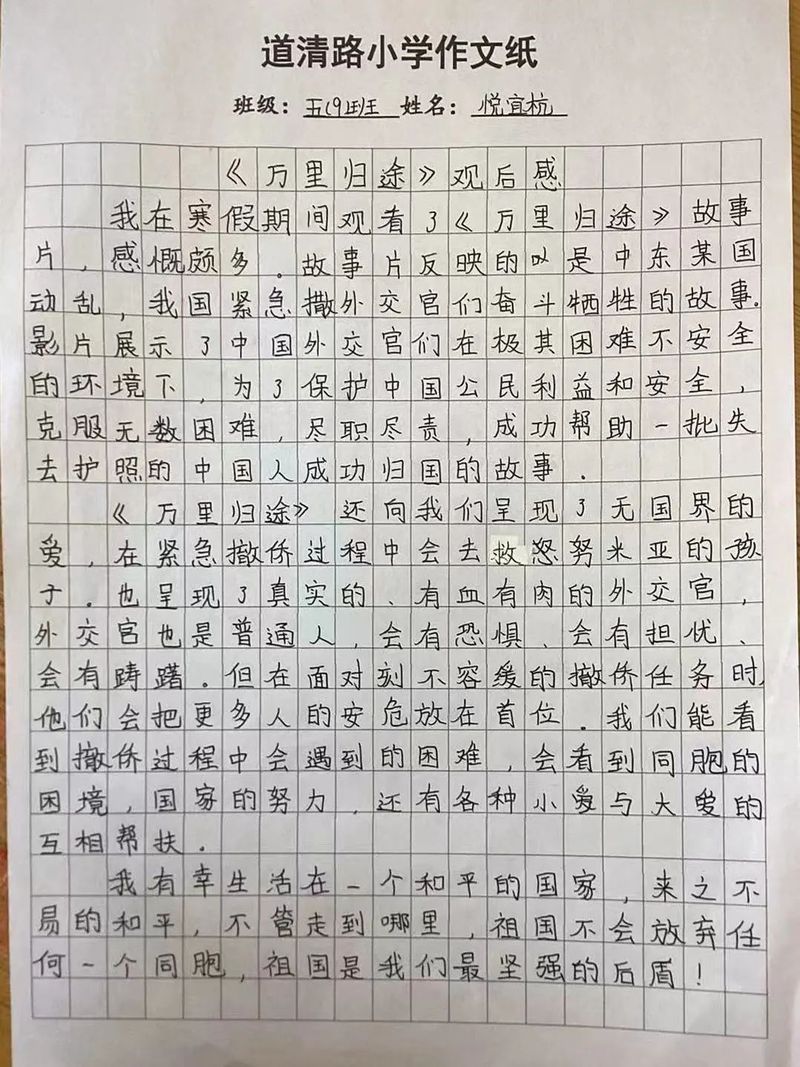 道清路小学作文纸
班级：五(9)班 姓名：悦宜杭
《万里归途》观后感
我在寒假期间观看了《万里归途》故事
片，感慨颇多。故事片反映的以是中东某国
动乱，我国紧急撤外交官们奋斗牺牲的故事。
影片展示了中国外交官们在极其困难不安全
的环境下，为了保护中国公民利益和安全，
克服无数困难，尽职尽责，成功帮助一批失
去护照的中国人成功归国的故事。
《万里归途》还向我们呈现了无国界的
爱，在紧急撤侨过程中会去救怒努米亚的孩
子。也呈现了真实的、有血有肉的外交官，
外交官也是普通人，会有恐惧、会有担忧、
会有踌躇。但在面对刻不容缓的撤侨任务时，
他们会把更多人的安危放在首位。我们能看
到撤侨过程中会遇到的困难，会看到同胞的
困境，国家的努力，还有各种小爱与大爱的
互相帮扶。
我有幸生活在一个和平的国家，来之不
易的和平，不管走到哪里，祖国不会放弃任
何一个同胞，祖国是我们最坚强的后盾！